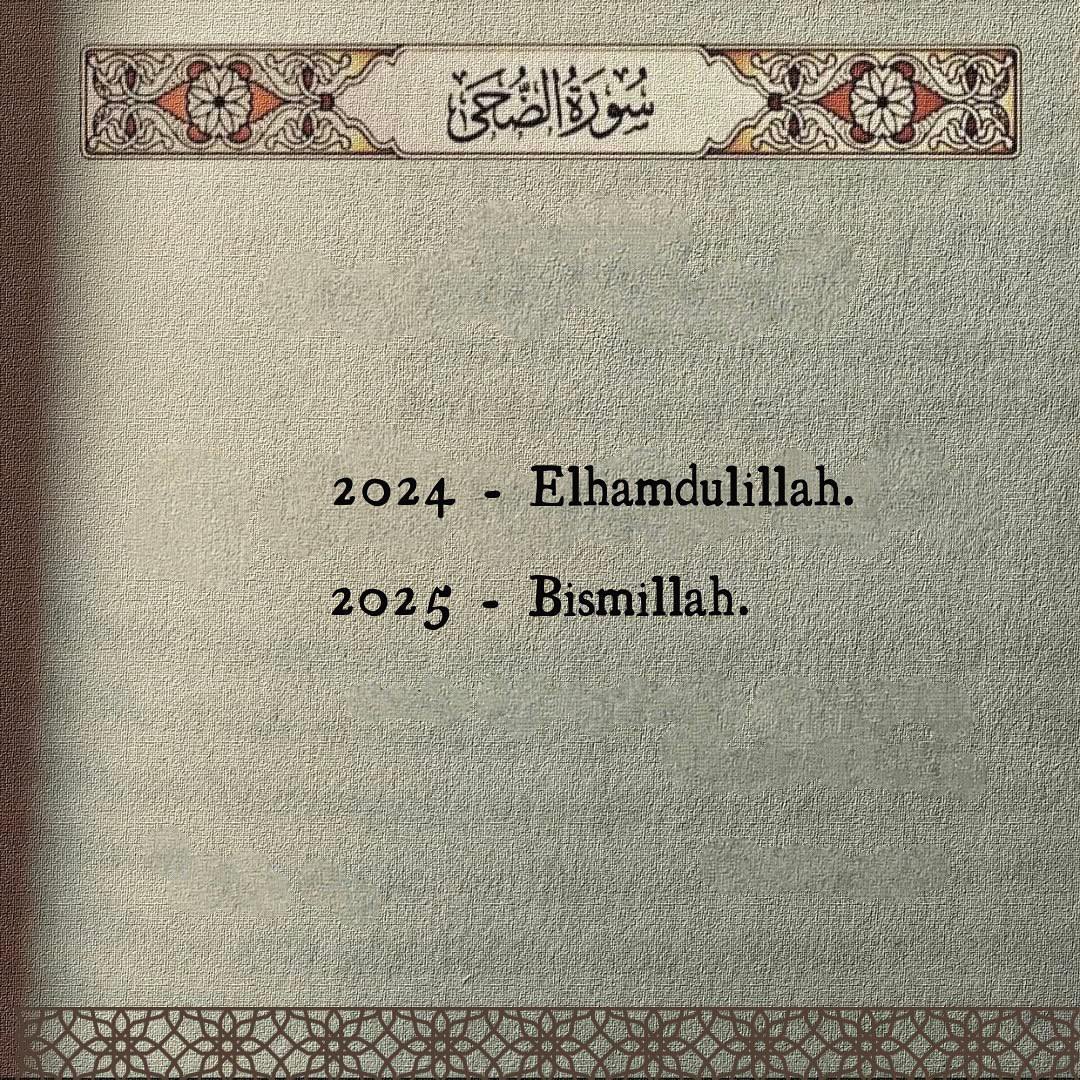 سُورَةُ الضُّحَىٰ
2024 - Elhamdulillah.
2025 - Bismillah.